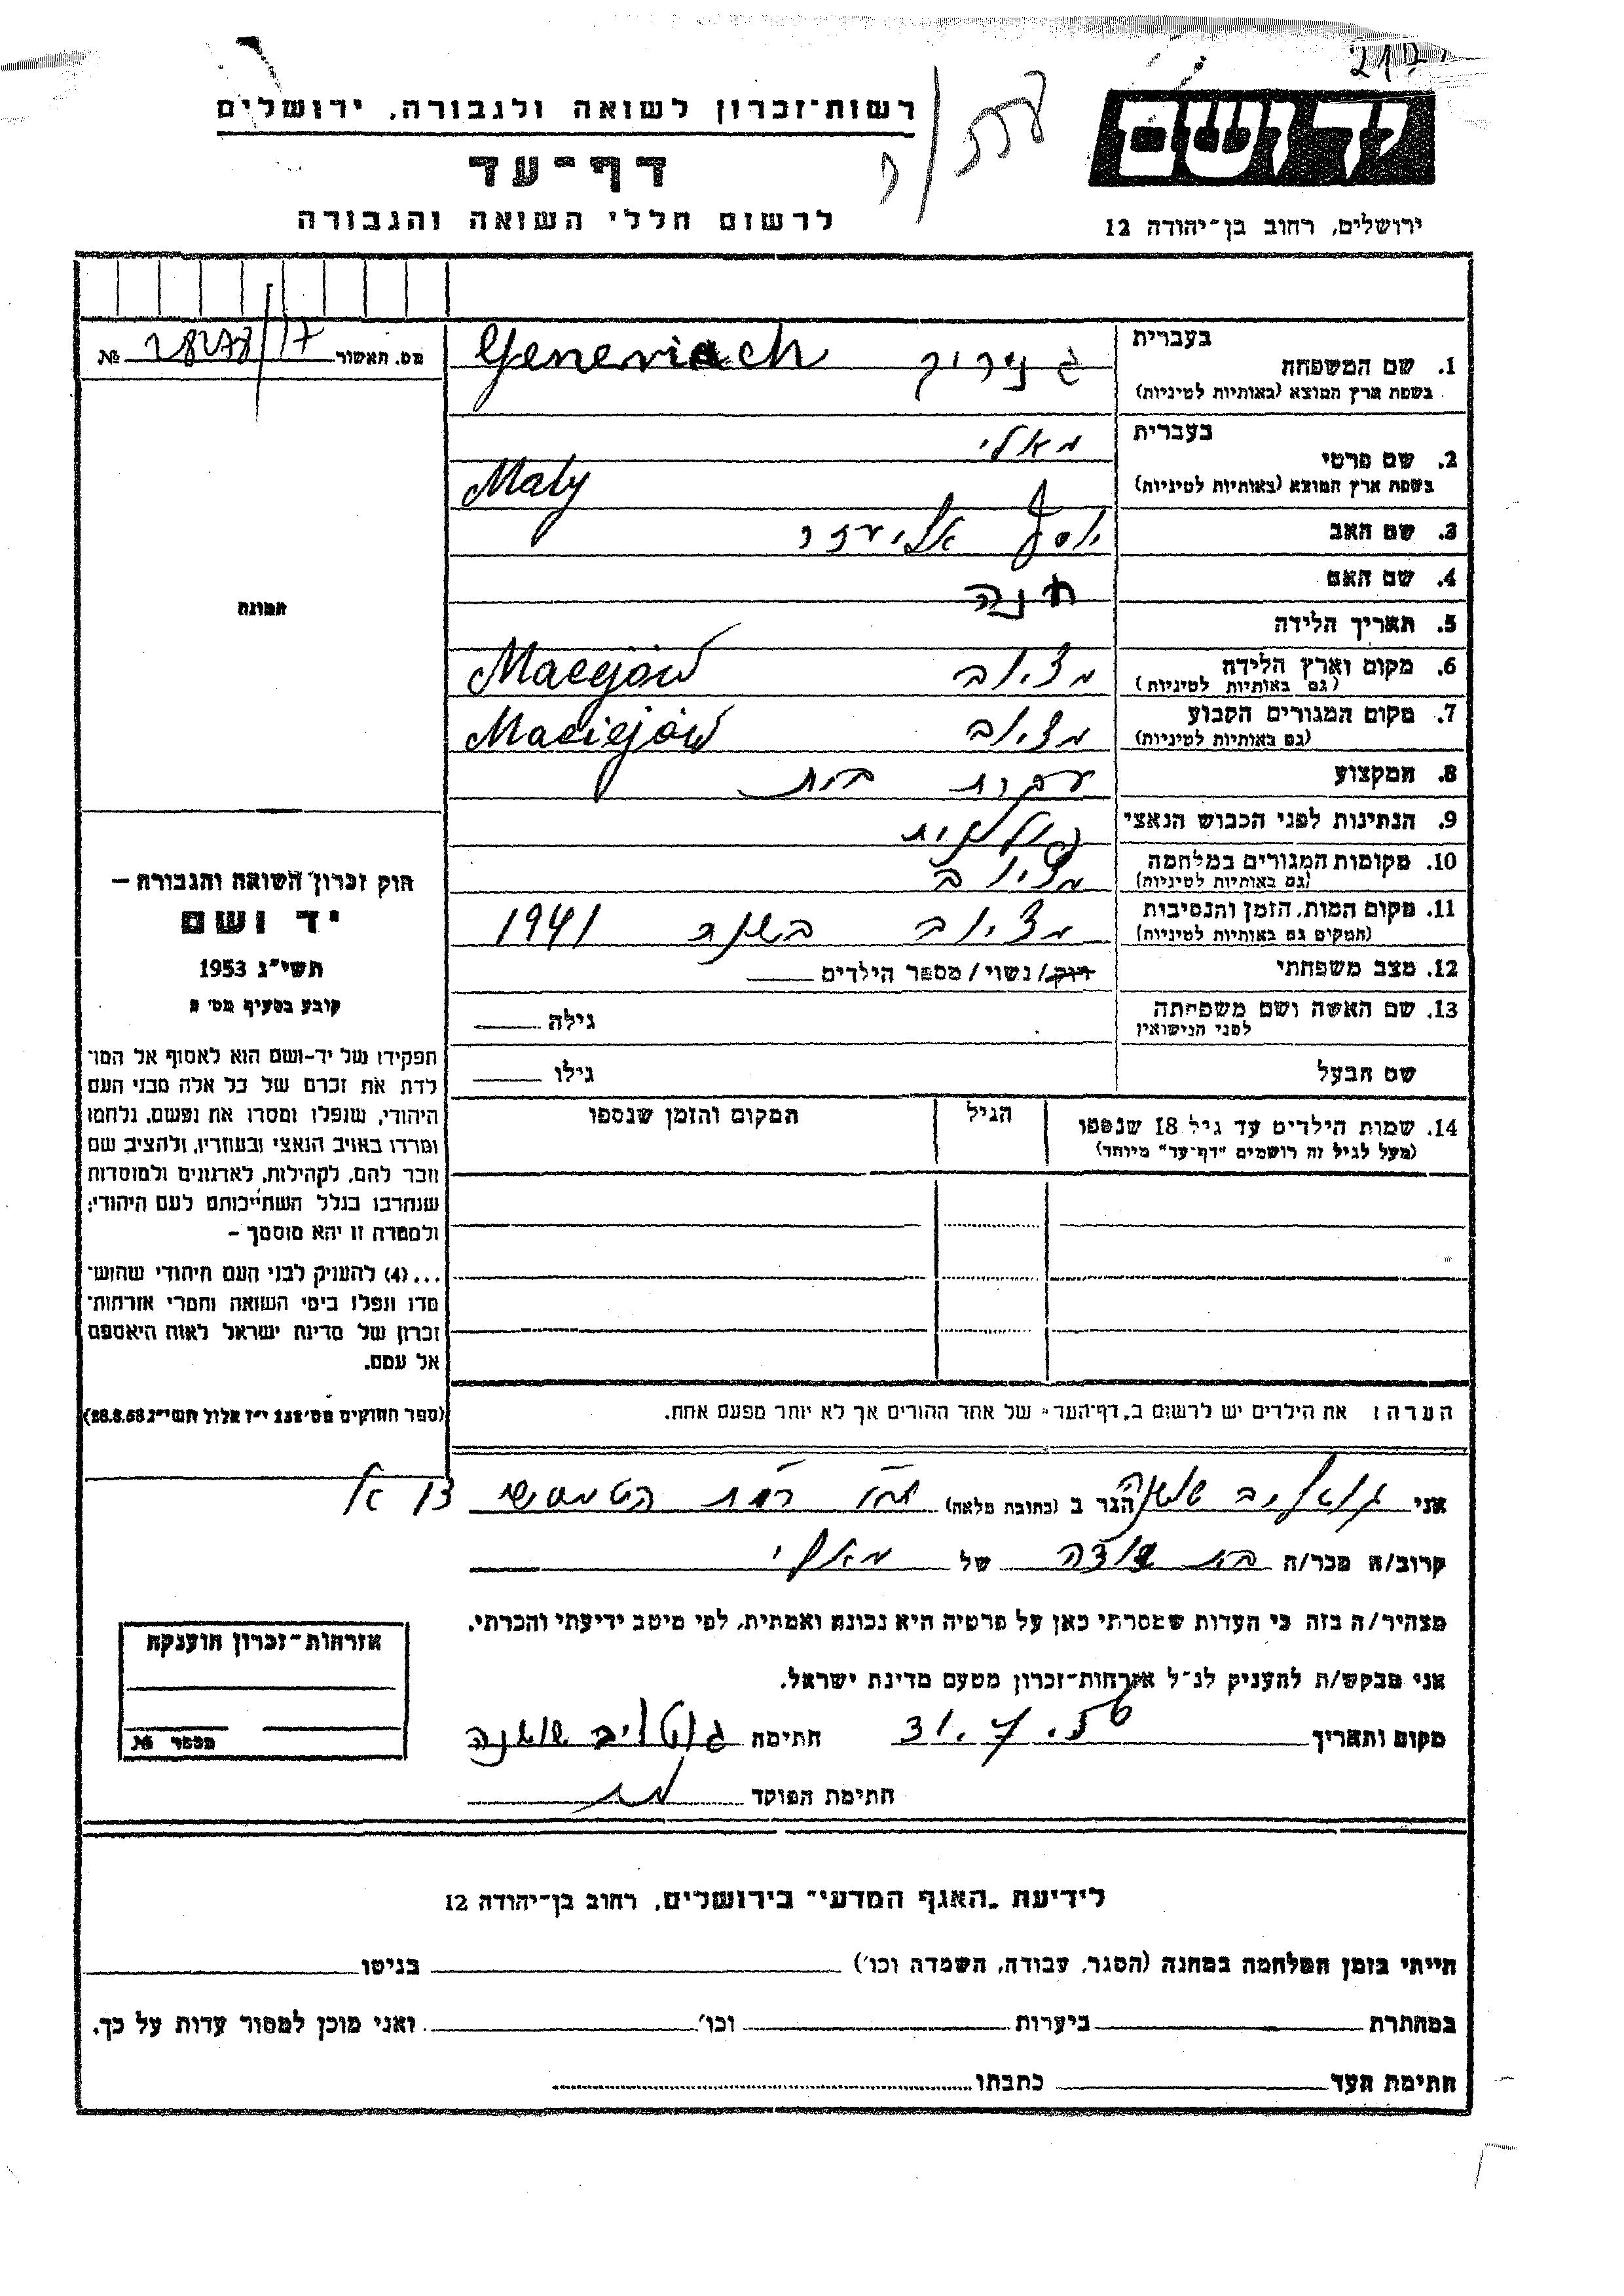 רשות־זכרון לשואה ולגבורה, ירושלים
דף־עד
לרשום חללי השואה והגבורה
יד ושם
ירושלים, רחוב בן־יהודה 12
מס. תאשור №
בעברית
1. שם המשפחה
בשפת ארץ המוצא (באותיות לטיניות)
Geneviach
בעברית
2. שם פרטי מאלי
בשפת ארץ המוצא (באותיות לטיניות) Maly
3. שם האב יוסף אליעזר
4. שם האם חנה
5. תאריך הלידה
6. מקום וארץ הלידה מציוב Maeyjów
(גם באותיות לטיניות)
7. מקום המגורים הקבוע מציוב Maciejów
(גם באותיות לטיניות)
8. המקצוע עקרת בית
9. הנתינות לפני הכבוש הנאצי פולנית
10. מקומות המגורים במלחמה מציוב
(גם באותיות לטיניות)
11. מקום המות, הזמן והנסיבות מציוב בשנת 1941
(המקום גם באותיות לטיניות)
12. מצב משפחתי רוק/נשוי/מספר הילדים
13. שם האשה ושם משפחתה גילה
לפני הנישואין
שם הבעל גילו
14. שמות הילדים עד גיל 18 שנספו הגיל המקום והזמן שנספו
(מעל לגיל זה רושמים "דף־עד" מיוחד)
הערה: את הילדים יש לרשום ב"דף־העד" של אחד ההורים אך לא יותר מפעם אחת.
תמונה
חוק זכרון השואה והגבורה —
יד ושם
תשי"ג 1953
קובע בסעיף מס' 2
תפקידו של יד-ושם הוא לאסוף אל המו־
לדת את זכרם של כל אלה מבני העם
היהודי, שנפלו ומסרו את נפשם, נלחמו
ומרדו באויב הנאצי ובעוזריו, ולהציב שם
וזכר להם, לקהילות, לארגונים ולמוסדות
שנחרבו בגלל השתייכותם לעם היהודי;
ולמטרה זו יהא מוסמך –
...(4) להעניק לבני העם היהודי שהוש־
מדו ונפלו בימי השואה והמרי אזרחות־
זכרון של מדינת ישראל לאות היאספם
אל עמם.
(ספר החוקים מס' 132 י"ז אלול תשי"ג 28.8.53)
אני גוטליב שושנה הגר ב (כתובת מלאה)
קרוב/ה מכר/ה בת דודה של מאלי
מצהיר/ה בזה כי העדות שמסרתי כאן על פרטיה היא נכונה ואמתית, לפי מיטב ידיעתי והכרתי.
אני מבקש/ת להעניק לנ"ל אזרחות־זכרון מטעם מדינת ישראל.
מקום ותאריך 31.7.56 חתימה גוטליב שושנה
חתימת הפוקד
אזרחות־זכרון הוענקה
מספר №
לידיעת "האגף המדעי" בירושלים, רחוב בן־יהודה 12
הייתי בזמן המלחמה במחנה (הסגר, עבודה, השמדה וכו') בגיטו
במחתרת ביערות וכו' ואני מוכן למסור עדות על כך.
חתימת העד כתבתו